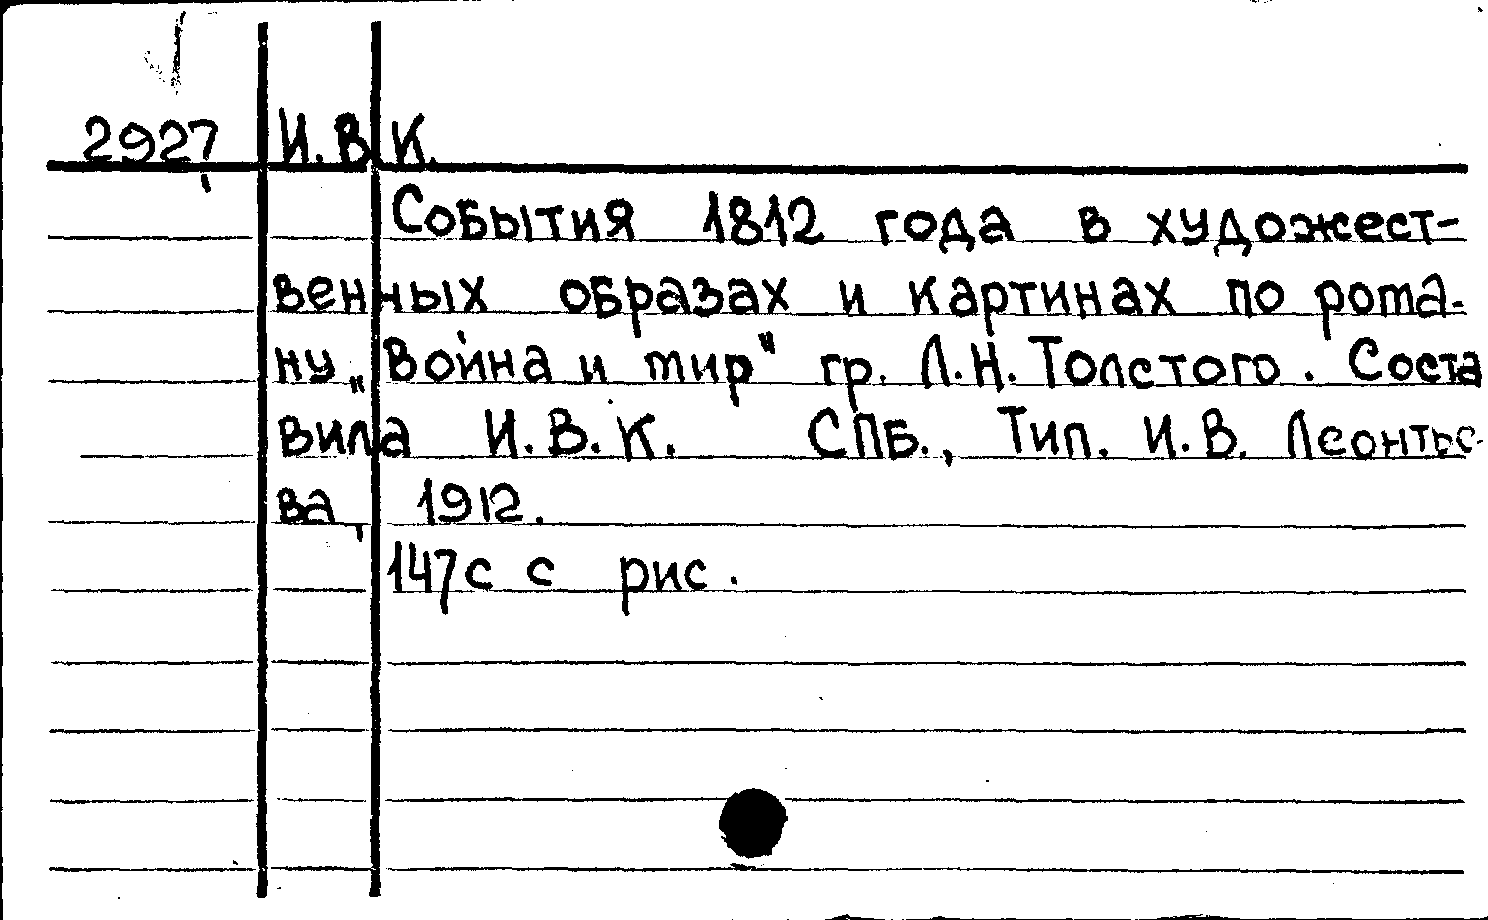 2927 И.В.К.
События 1812 года в художест-
венных образах и картинах по рома-
ну „Война и мир" гр. Л.Н.Толстого. Соста
вила И.В.К. СПБ., Тип. И.В. Леонтье-
ва, 1912.
147с с рис.